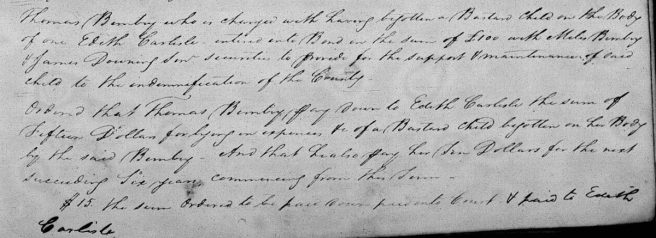 Thomas Bembry who is charged with having begotten a Bastard Child on the Body
of one Edeth Carlisle entered into Bond in the sum of £100 with Miles Bembry
& James Downing Sen securities to provide for the support & maintenance of said
child to the indemnification of the County.
Ordered that Thomas Bembry pay down to Edeth Carlisle the sum of
Fifteen Dollars for lying in expences &c of a Bastard Child begotten on her Body
by the said Bembry. And that he also pay her Ten Dollars for the next
succeeding Six years commencing from this Term.
$15. the sum Ordered to be paid down paid into Court & paid to Edeth
Carlisle